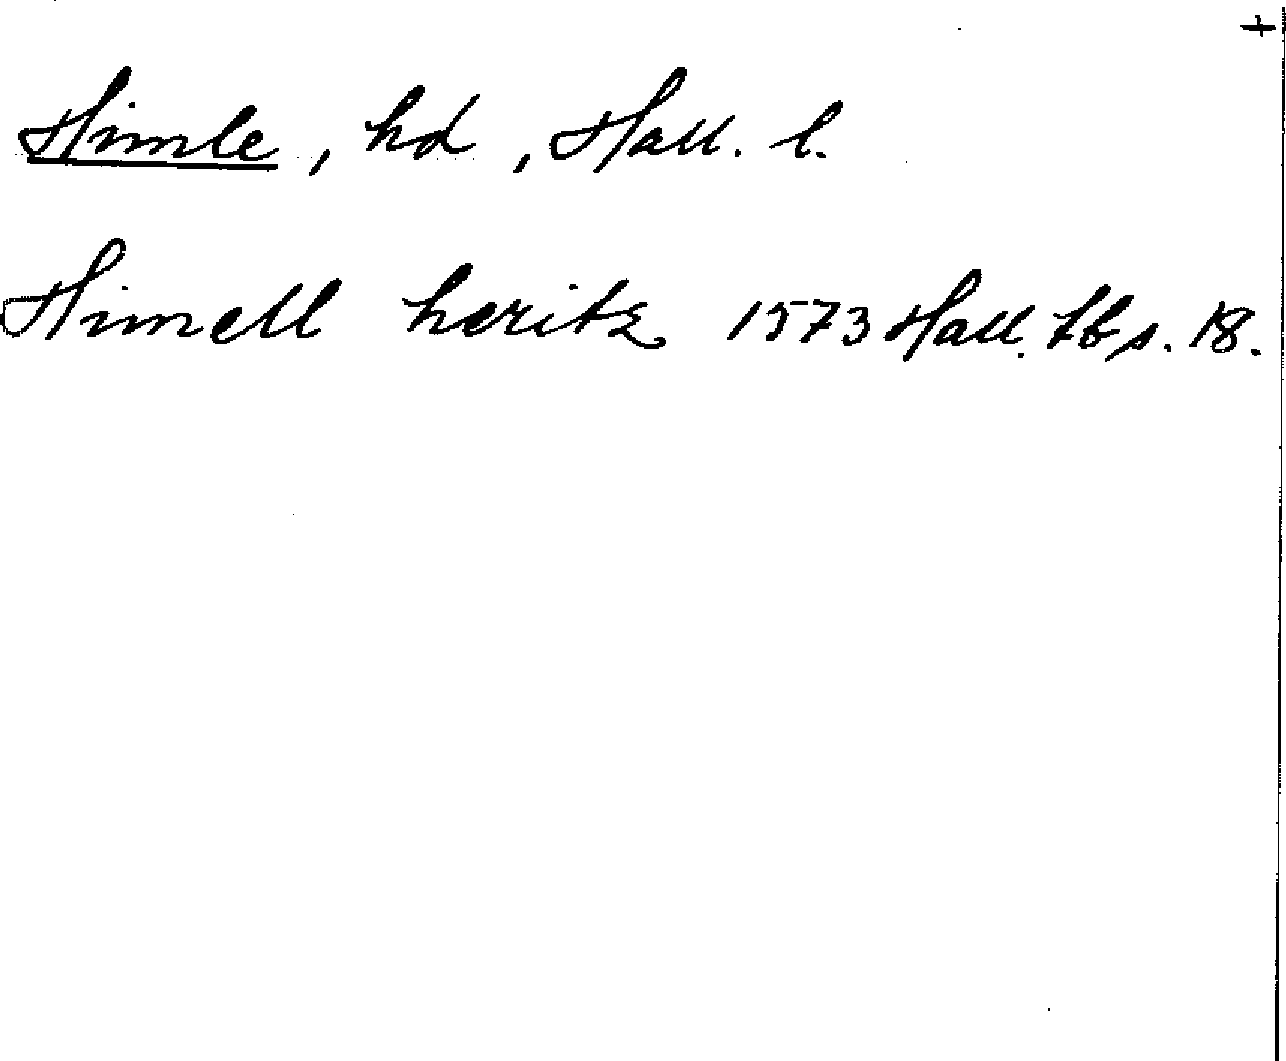 +
Himle, hd, Hall. l.
Himell heritz 1573 Hall. tbs. 18.